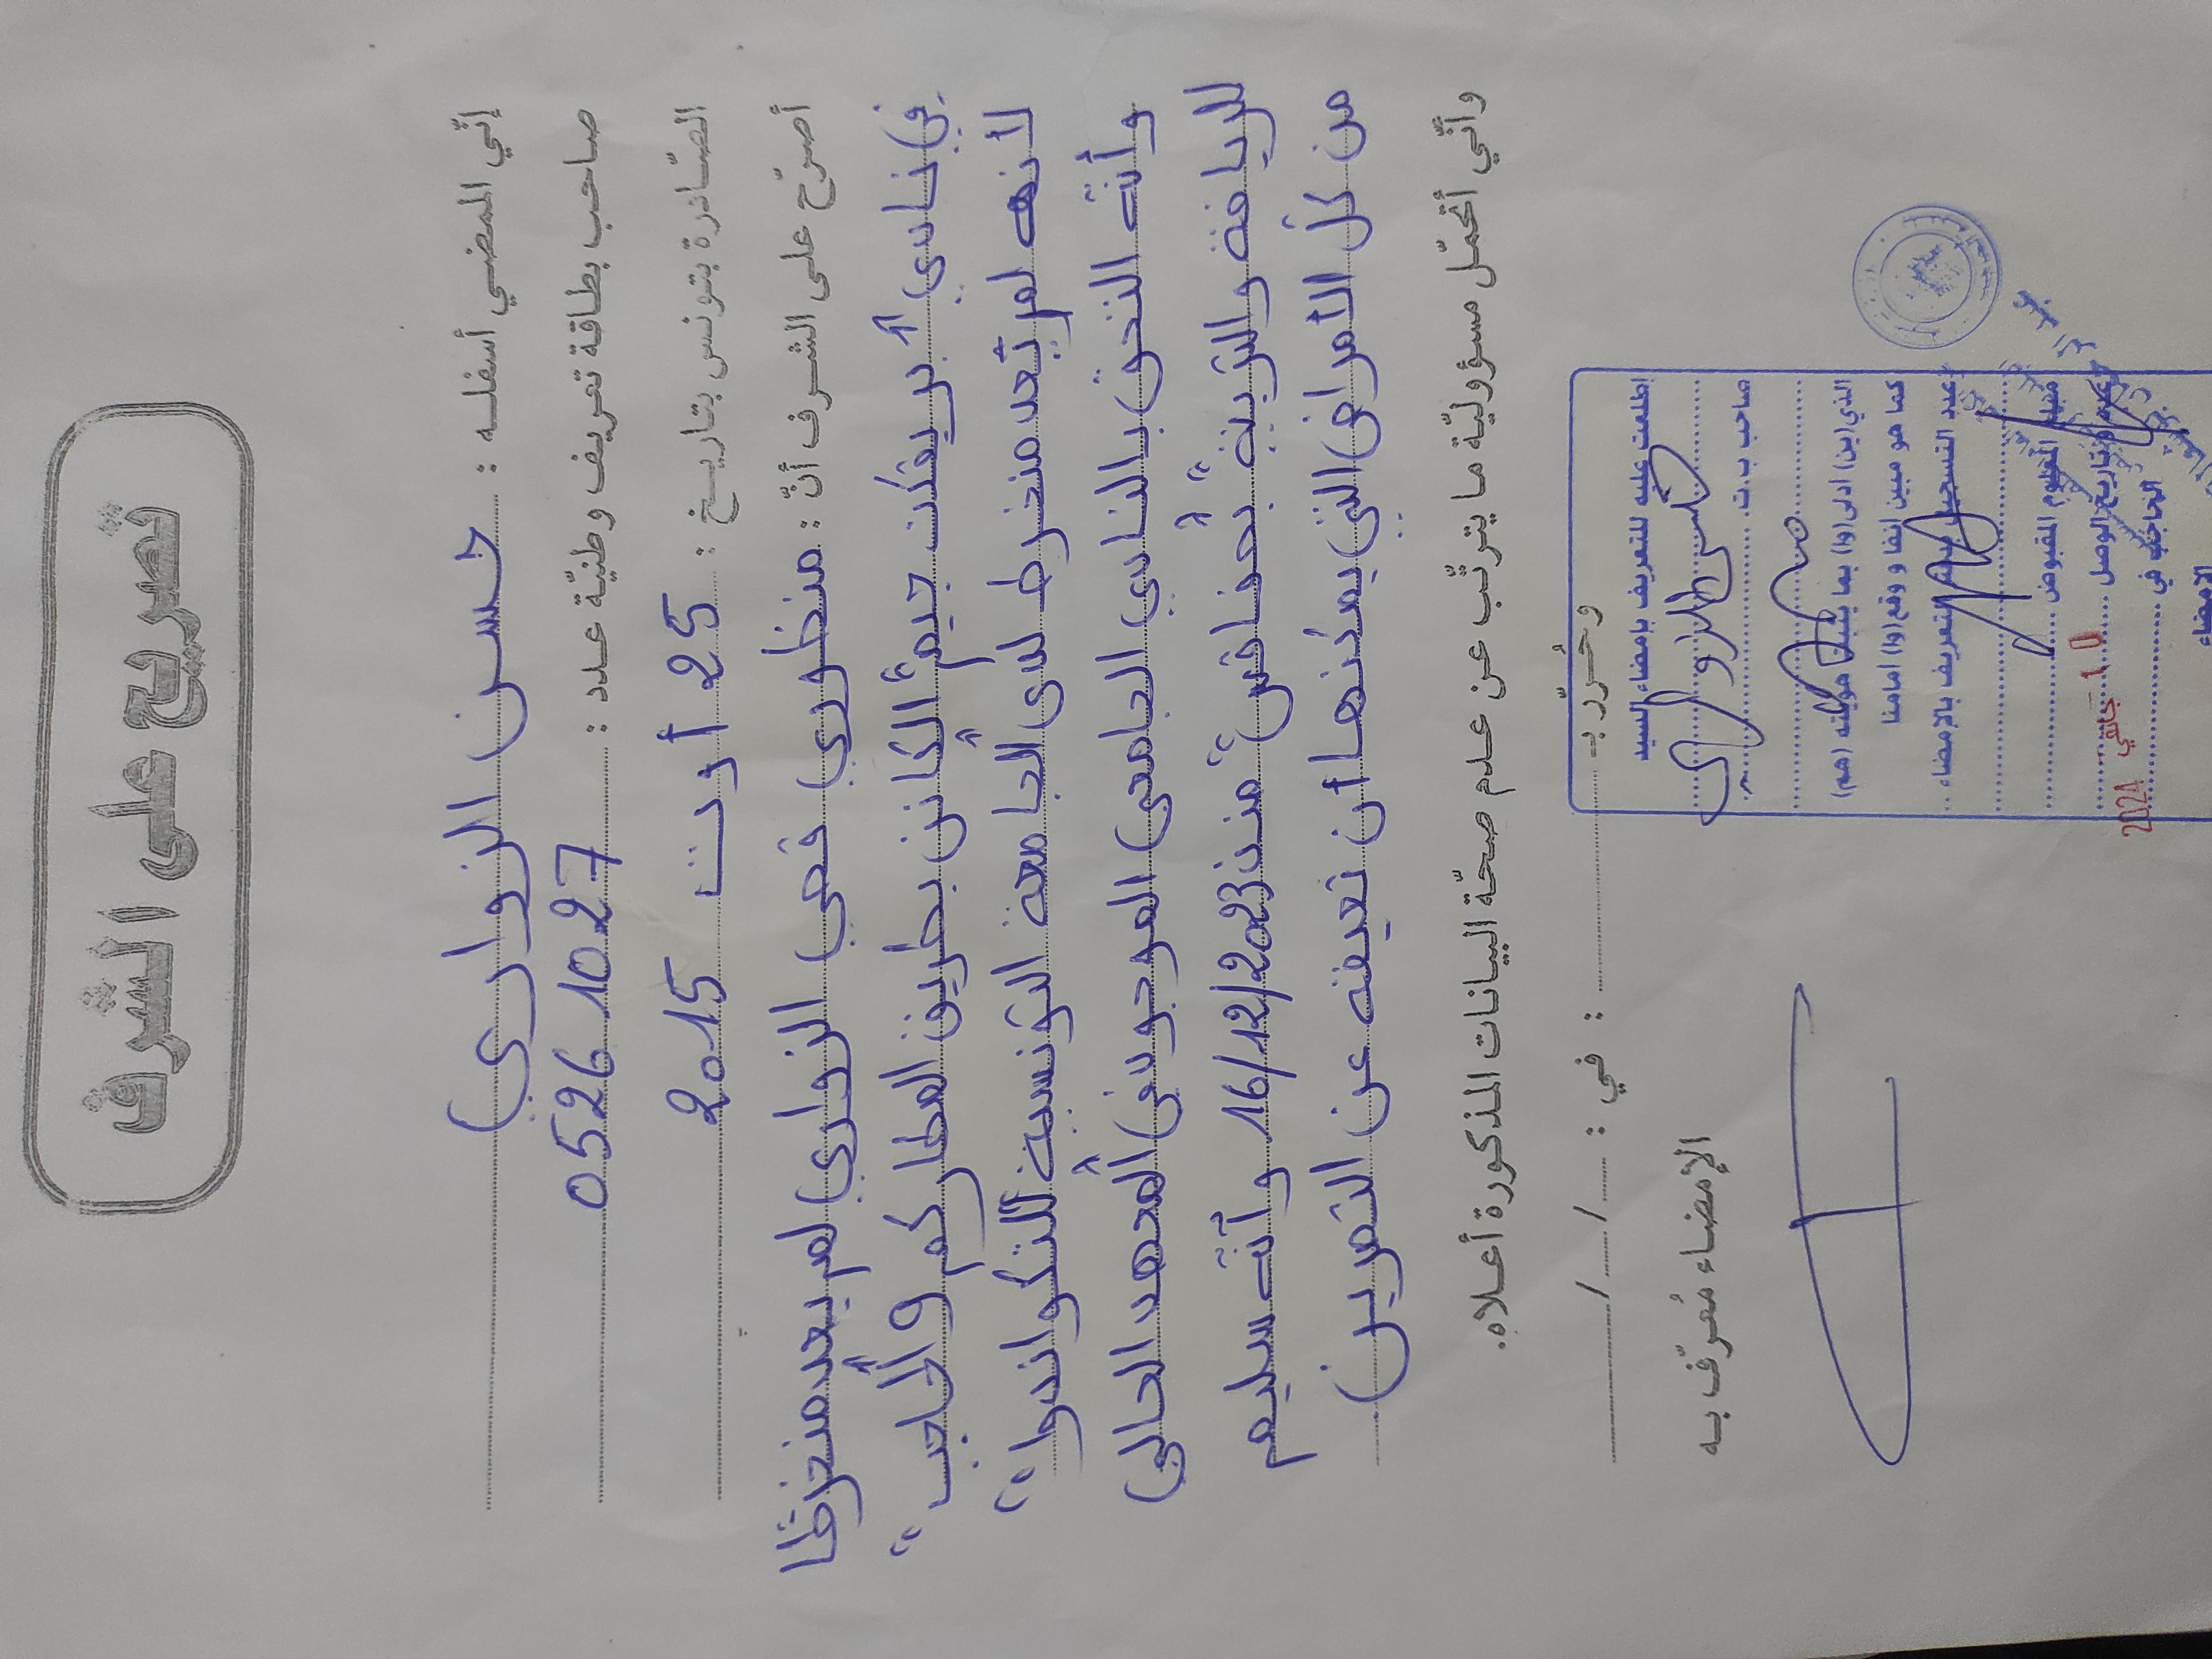 تصريح على الشرف
إنّي الممضي أسفله : حسن الزواري
صاحب بطاقة تعريف وطنيّة عدد : 05261027
الصّادرة بتونس بتاريخ : 25 أوت 2015
أصرّح على الشرف أنّ : منظوري قصي الزواري لم يعد منخرطا
في نادي "بريفكت جيم" الكائن بطريق العطار كم 9 "الحاجب"
لأنه لم تعد منخرط لدى الجامعة التونسية للتكواندوا"
وأنّه التحق بالنادي الجامعي الموجود في المعهد العالي
للرياضة والتربية بصفاقس" منذ 16/12/2023 وأنّه سليم
من كل الأمراض التي يمكنها أن تعيقه عن التمرين
وأنّي أتحمّل مسؤوليّة ما يترتّب عن عدم صحّة البيانات المذكورة أعلاه.
وحُرّر بـ : في : / /
الإمضاء مُعرّف به
اطلعت عليه للتعريف بإمضاء السيد
حسن الزواري
صاحب ب.ت
الذي (ين) ادلى (وا) بما يثبت هويته (هم)
كما هو مبين انفا و وقع (وا) امامنا
عدد التسجيل بدفتر التعريف بالإمضاء
مبلغ المعلوم المقبوض
عدد و تاريخ الوصل
الحاجب في 10 جانفي 2024
الإمضاء